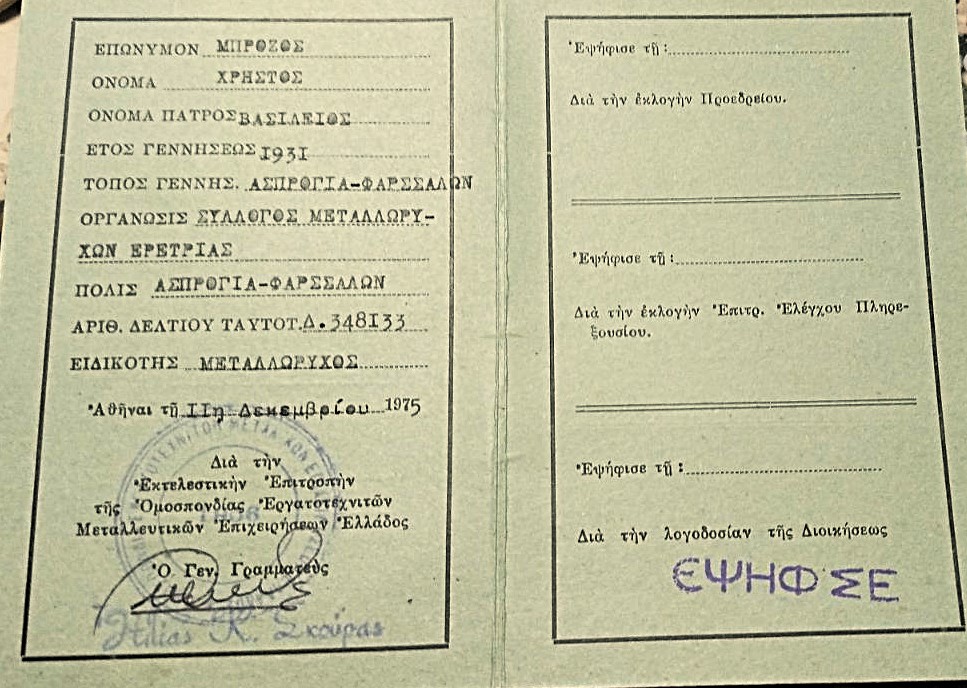 ΕΠΩΝΥΜΟΝ ΜΠΡΟΖΟΣ
ΟΝΟΜΑ ΧΡΗΣΤΟΣ
ΟΝΟΜΑ ΠΑΤΡΟΣ ΒΑΣΙΛΕΙΟΣ
ΕΤΟΣ ΓΕΝΝΗΣΕΩΣ 1931
ΤΟΠΟΣ ΓΕΝΝΗΣ. ΑΣΠΡΟΓΙΑ-ΦΑΡΣΣΑΛΩΝ
ΟΡΓΑΝΩΣΙΣ ΣΥΛΛΟΓΟΣ ΜΕΤΑΛΛΩΡΥ-
ΧΩΝ ΕΡΕΤΡΙΑΣ
ΠΟΛΙΣ ΑΣΠΡΟΓΙΑ-ΦΑΡΣΣΑΛΩΝ
ΑΡΙΘ. ΔΕΛΤΙΟΥ ΤΑΥΤΟΤ. Δ. 348133
ΕΙΔΙΚΟΤΗΣ ΜΕΤΑΛΛΩΡΥΧΟΣ
Ἀθῆναι τῇ 11η Δεκεμβρίου 1975
Διὰ τὴν
Ἐκτελεστικὴν Ἐπιτροπὴν
τῆς Ὁμοσπονδίας Ἐργατοτεχνιτῶν
Μεταλλευτικῶν Ἐπιχειρήσεων Ἑλλάδος
Ὁ Γεν. Γραμματεὺς
Ηλίας Κ. Σκούρας
Ἐψήφισε τῇ :
Διὰ τὴν ἐκλογὴν Προεδρείου.
Ἐψήφισε τῇ :
Διὰ τὴν ἐκλογὴν Ἐπιτρ. Ἐλέγχου Πληρε-
ξουσίου.
Ἐψήφισε τῇ :
Διὰ τὴν λογοδοσίαν τῆς Διοικήσεως
ΕΨΗΦΣΕ